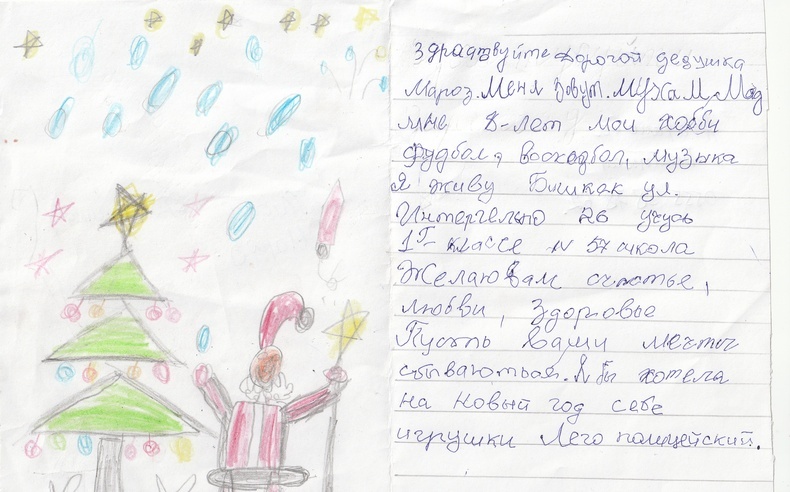 Здраствуйте дорогой дедушка
Мароз. Меня зовут. Мухам-Мад
мне 8-лет мои хобби
Фудбол, Воохедбол, музыка
Я живу Бишкак ул.
Интергельно 26 учусь
1г-классе N 57 школа
Желаю Вам счастье,
любви, Здоровье
Пусть Ваши мечты
сбываються. Я бы хотела
на новый год себе
игрушки Лего полицейский.